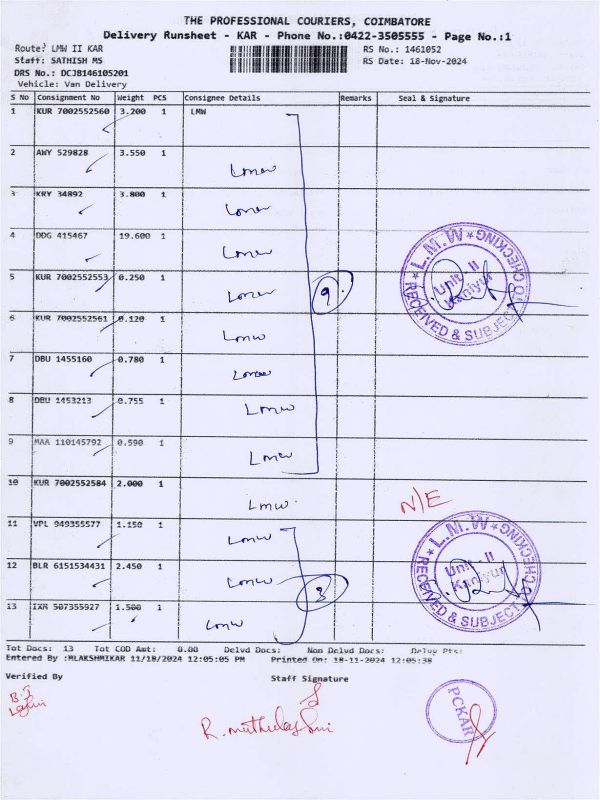 THE PROFESSIONAL COURIERS, COIMBATORE
Delivery Runsheet - KAR - Phone No.:0422-3505555 - Page No.:1
Route: LMW II KAR RS No.: 1461052
Staff: SATHISH MS RS Date: 18-Nov-2024
DRS No.: DCJB146105201
Vehicle: Van Delivery
S No Consignment No Weight PCS Consignee Details Remarks Seal & Signature
1 KUR 7002552560 3.200 1 LMW
2 AWY 529828 3.550 1 LMW
3 KRY 34892 3.800 1 LMW
4 DDG 415467 19.600 1 LMW
5 KUR 7002552553 0.250 1 LMW 9
6 KUR 7002552561 0.120 1 LMW
7 DBU 1455160 0.780 1 LMW
8 DBU 1453213 0.755 1 LMW
9 MAA 110145792 0.590 1 LMW
10 KUR 7002552584 2.000 1 LMW N/E
11 VPL 949355577 1.150 1 LMW
12 BLR 6151534431 2.450 1 LMW 3
13 IXM 507355927 1.500 1 LMW
L.M.W
Unit - II
Kaniyur
RECEIVED & SUBJECT TO CHECKING
L.M.W
Unit - II
Kaniyur
RECEIVED & SUBJECT TO CHECKING
Tot Docs: 13 Tot COD Amt: 0.00 Delvd Docs: Non Delvd Docs: Delvy Pts:
Entered By :MLAKSHMIKAR 11/18/2024 12:05:05 PM Printed On: 18-11-2024 12:05:38
Verified By Staff Signature
PCKAR